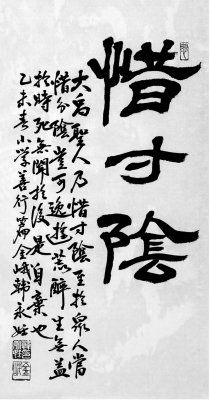 惜寸陰
大禹聖人乃惜寸陰至於衆人當
惜分陰豈可逸遊荒醉生無益
於時死無聞於後是自棄也
乙未春小学善行篇金峨韓永